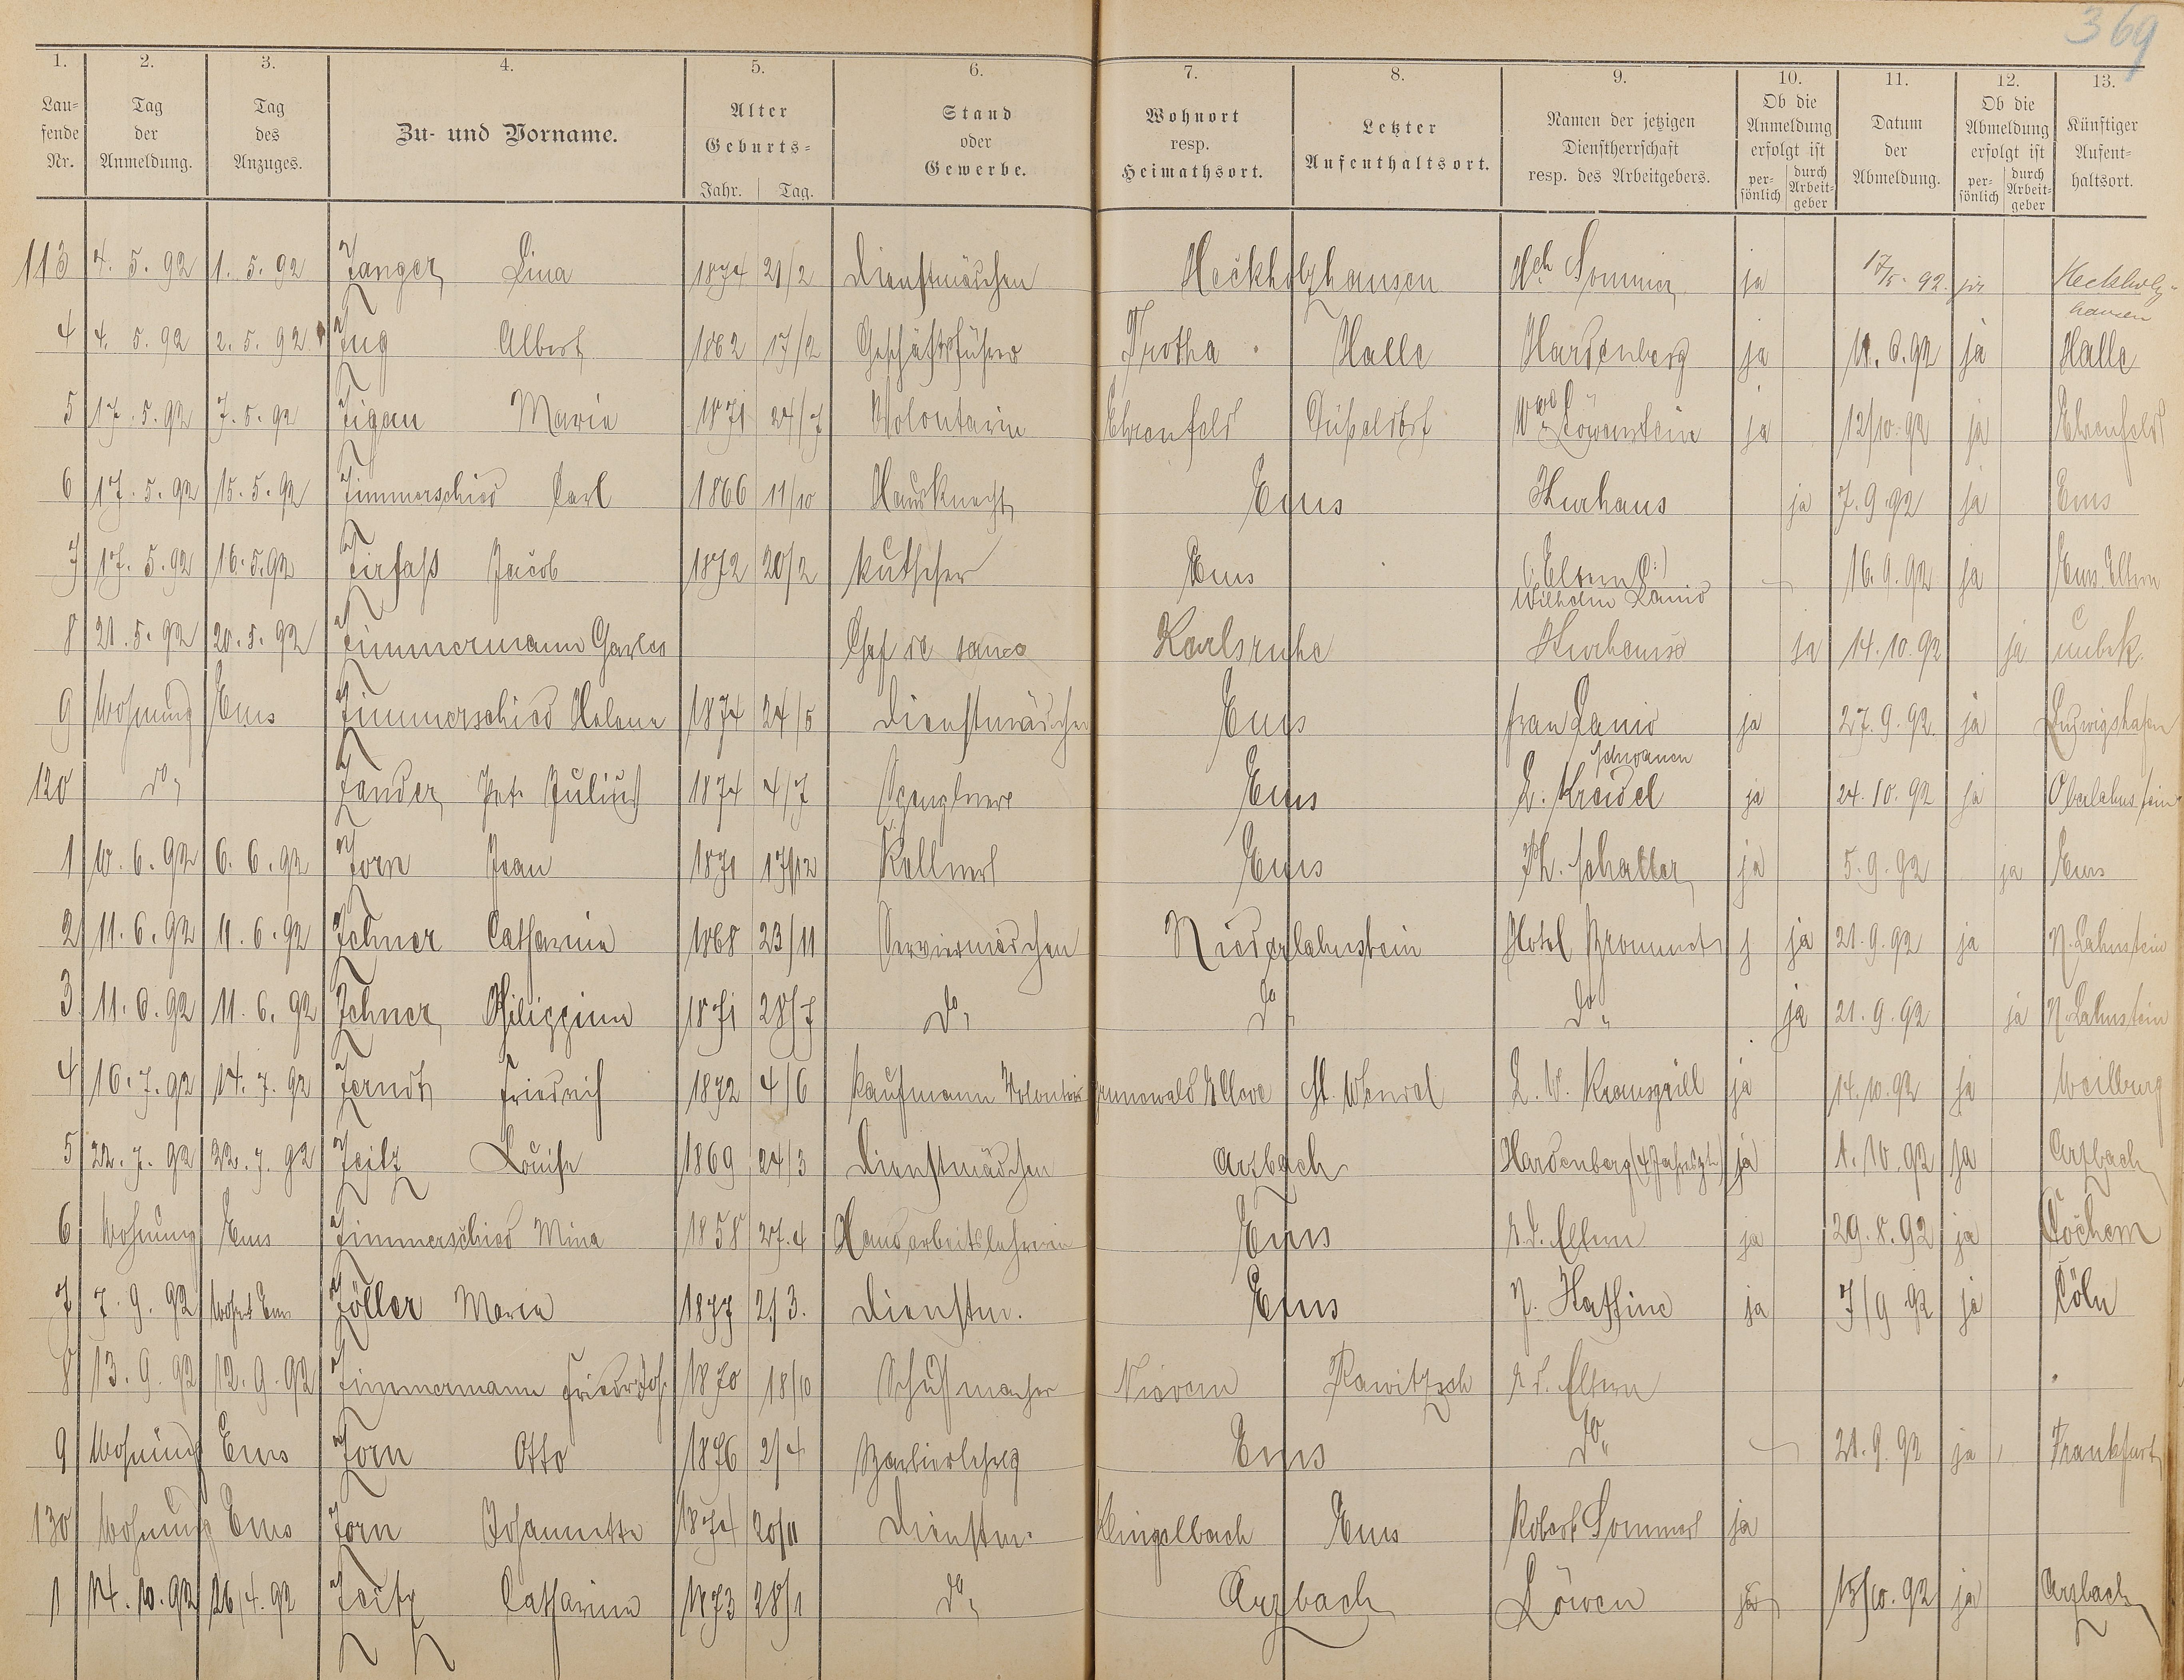 369
1. 2. 3. 4. 5. 6. 7. 8. 9. 10. 11. 12. 13.
Lau-
fende
Nr.
Tag
der
Anmeldung.
Tag
des
Anzuges.
Zu- und Vorname.
Alter
Geburts-
Jahr. Tag.
Stand
oder
Gewerbe.
Wohnort
resp.
Heimathsort.
Letzter
Aufenthaltsort.
Namen der jetzigen
Dienstherrschaft
resp. des Arbeitgebers.
Ob die
Anmeldung
erfolgt ist
per-
sönlich
durch
Arbeit-
geber
Datum
der
Abmeldung.
Ob die
Abmeldung
erfolgt ist
per-
sönlich
durch
Arbeit-
geber
Künftiger
Aufent-
haltsort.
113 4. 5. 92 1. 5. 92 Zanger Lina 1874 21/2 Dienstmädchen Heckholzhausen Sommer ja 17/5. 92. ja Heckholz-
hausen
4 4. 5. 92 2. 5. 92 Zug Albert 1862 17/2 Geschäftsführer Trotha Halle Hardenberg ja 11. 6. 92 ja Halle
5 17. 5. 92 7. 5. 92 Zigan Maria 1871 24/7 Volontairin Ehrenfeld Düßeldorf Löwenstein ja 12/10. 92 ja Ehrenfeld
6 17. 5. 92 15. 5. 92 Zimmerschied Carl 1866 11/10 Hausknecht Ems Kurhaus ja 7. 9. 92 ja Ems
7 17. 5. 92 16. 5. 92 Zirfaß Jacob 1872 20/2 Kutscher Ems (:Eltern:) 16. 9. 92 ja Ems Eltern
Wilhelm Lanio
8 21. 5. 92 20. 5. 92 Zimmermann Karlsruhe Kurhaus ja 14. 10. 92 ja unbek.
9 Wohnung Ems Zimmerschied Helene 1874 24/5 Dienstmädchen Ems Frau Lanio ja 27. 9. 92. ja Ludwigshafen
Schwanen
120 do Zander Pet. Julius 1874 4/7 Spengler Ems L. Kreidel ja 24. 10. 92 ja Oberlahnstein
1 10. 6. 92 6. 6. 92 Zorn Jean 1871 17/12 Kellner Ems Ph. Schatter ja 5. 9. 92 ja Ems
2 11. 6. 92 11. 6. 92 Zehner Catharina 1868 23/11 Serviermädchen Niederlahnstein Hotel j ja 21. 9. 92 ja N. Lahnstein
3 11. 6. 92 11. 6. 92 Zehner Philippine 1871 28/7 do do do ja 21. 9. 92 ja N. Lahnstein
4 16. 7. 92 14. 7. 92 Zerndt Friedrich 1872 4/6 Kaufmann Volontair St. Wendel L. W. Kransgrill ja 14. 10. 92 ja Weilburg
5 22. 7. 92 22. 7. 92 Zeitz Louise 1869 24/3 Dienstmädchen Arzbach Hardenberg ja 1. 10. 92 ja Arzbach
6 Wohnung Ems Zimmerschied Mina 1858 27. 4 Handarbeitslehrerin Ems b. d. Eltern ja 29. 8. 92 ja Cochem
7 7. 9. 92 Wohnt Ems Zöller Maria 1877 2/3. Dienstm. Ems Haffine ja 7/9 92 ja Cöln
8 13. 9. 92 12. 9. 92 Zimmermann Friedr. Joh. 1870 18/10 Schuhmacher Nievern Rawitzsch b. d. Eltern
9 Wohnung Ems Zorn Otto 1876 2/4 Barbierlehrlg Ems do 21. 9. 92 ja Frankfurt
130 Wohnung Ems Zorn Johannette 1874 20/11 Dienstm. Klingelbach Ems Robert Sommer ja
1 14. 10. 92 26/4. 92 Zeitz Catharina 1873 28/1 do Arzbach Löwen ja 15/10. 92 ja Arzbach